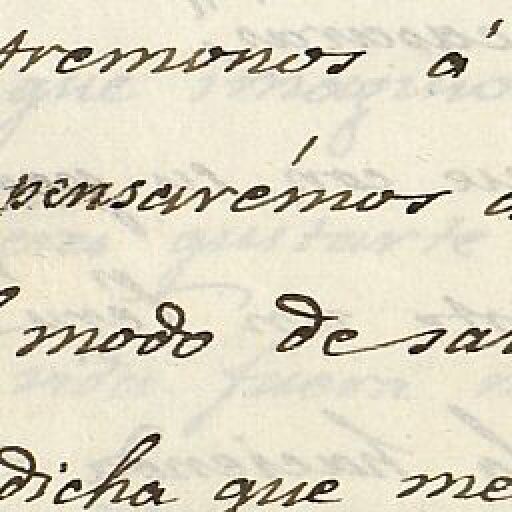 tremonos á
pensarémos
modo de sa
dicha que me